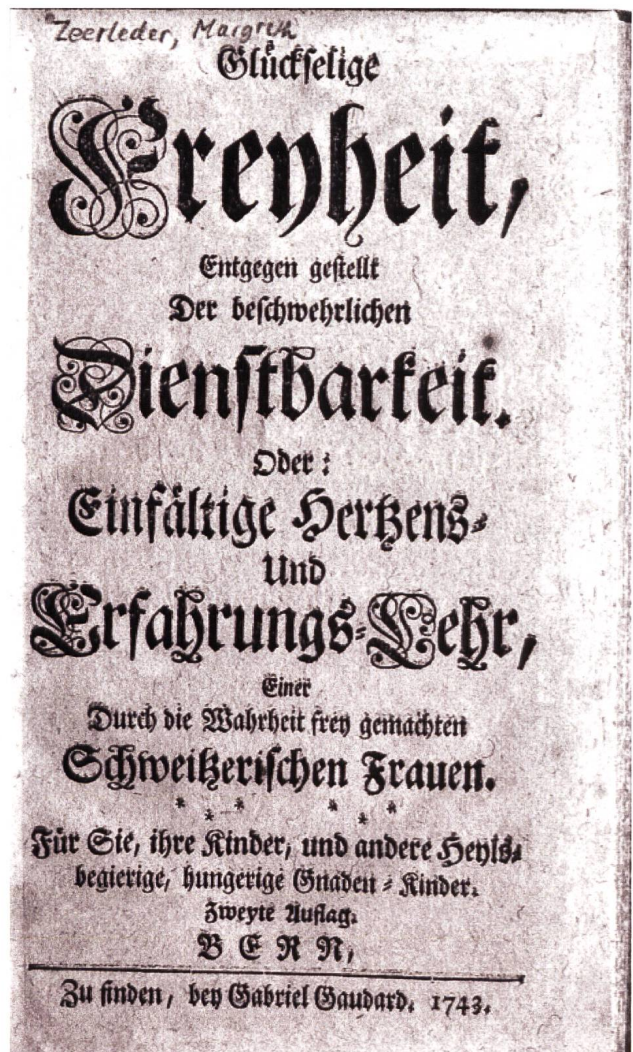 Zeerleder, Margrith
Glückselige
Freyheit,
Entgegen gestellt
Der beschwehrlichen
Dienstbarkeit.
Oder:
Einfältige Hertzens-
Und
Erfahrungs-Lehr,
Einer
Durch die Wahrheit frey gemachten
Schweitzerischen Frauen.
* * * * * *
Für Sie, ihre Kinder, und andere Heyls-
begierige, hungerige Gnaden-Kinder.
Zweyte Auflag.
BERN,
Zu finden, bey Gabriel Gaudard. 1743.